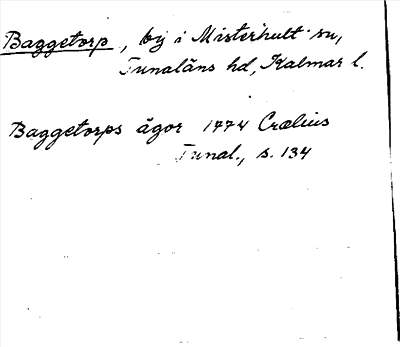 Baggetorp, by i Misterhult sn,
Tunaläns hd, Kalmar l.
Baggetorps ägor 1774 Crælius
Tunal., s. 134